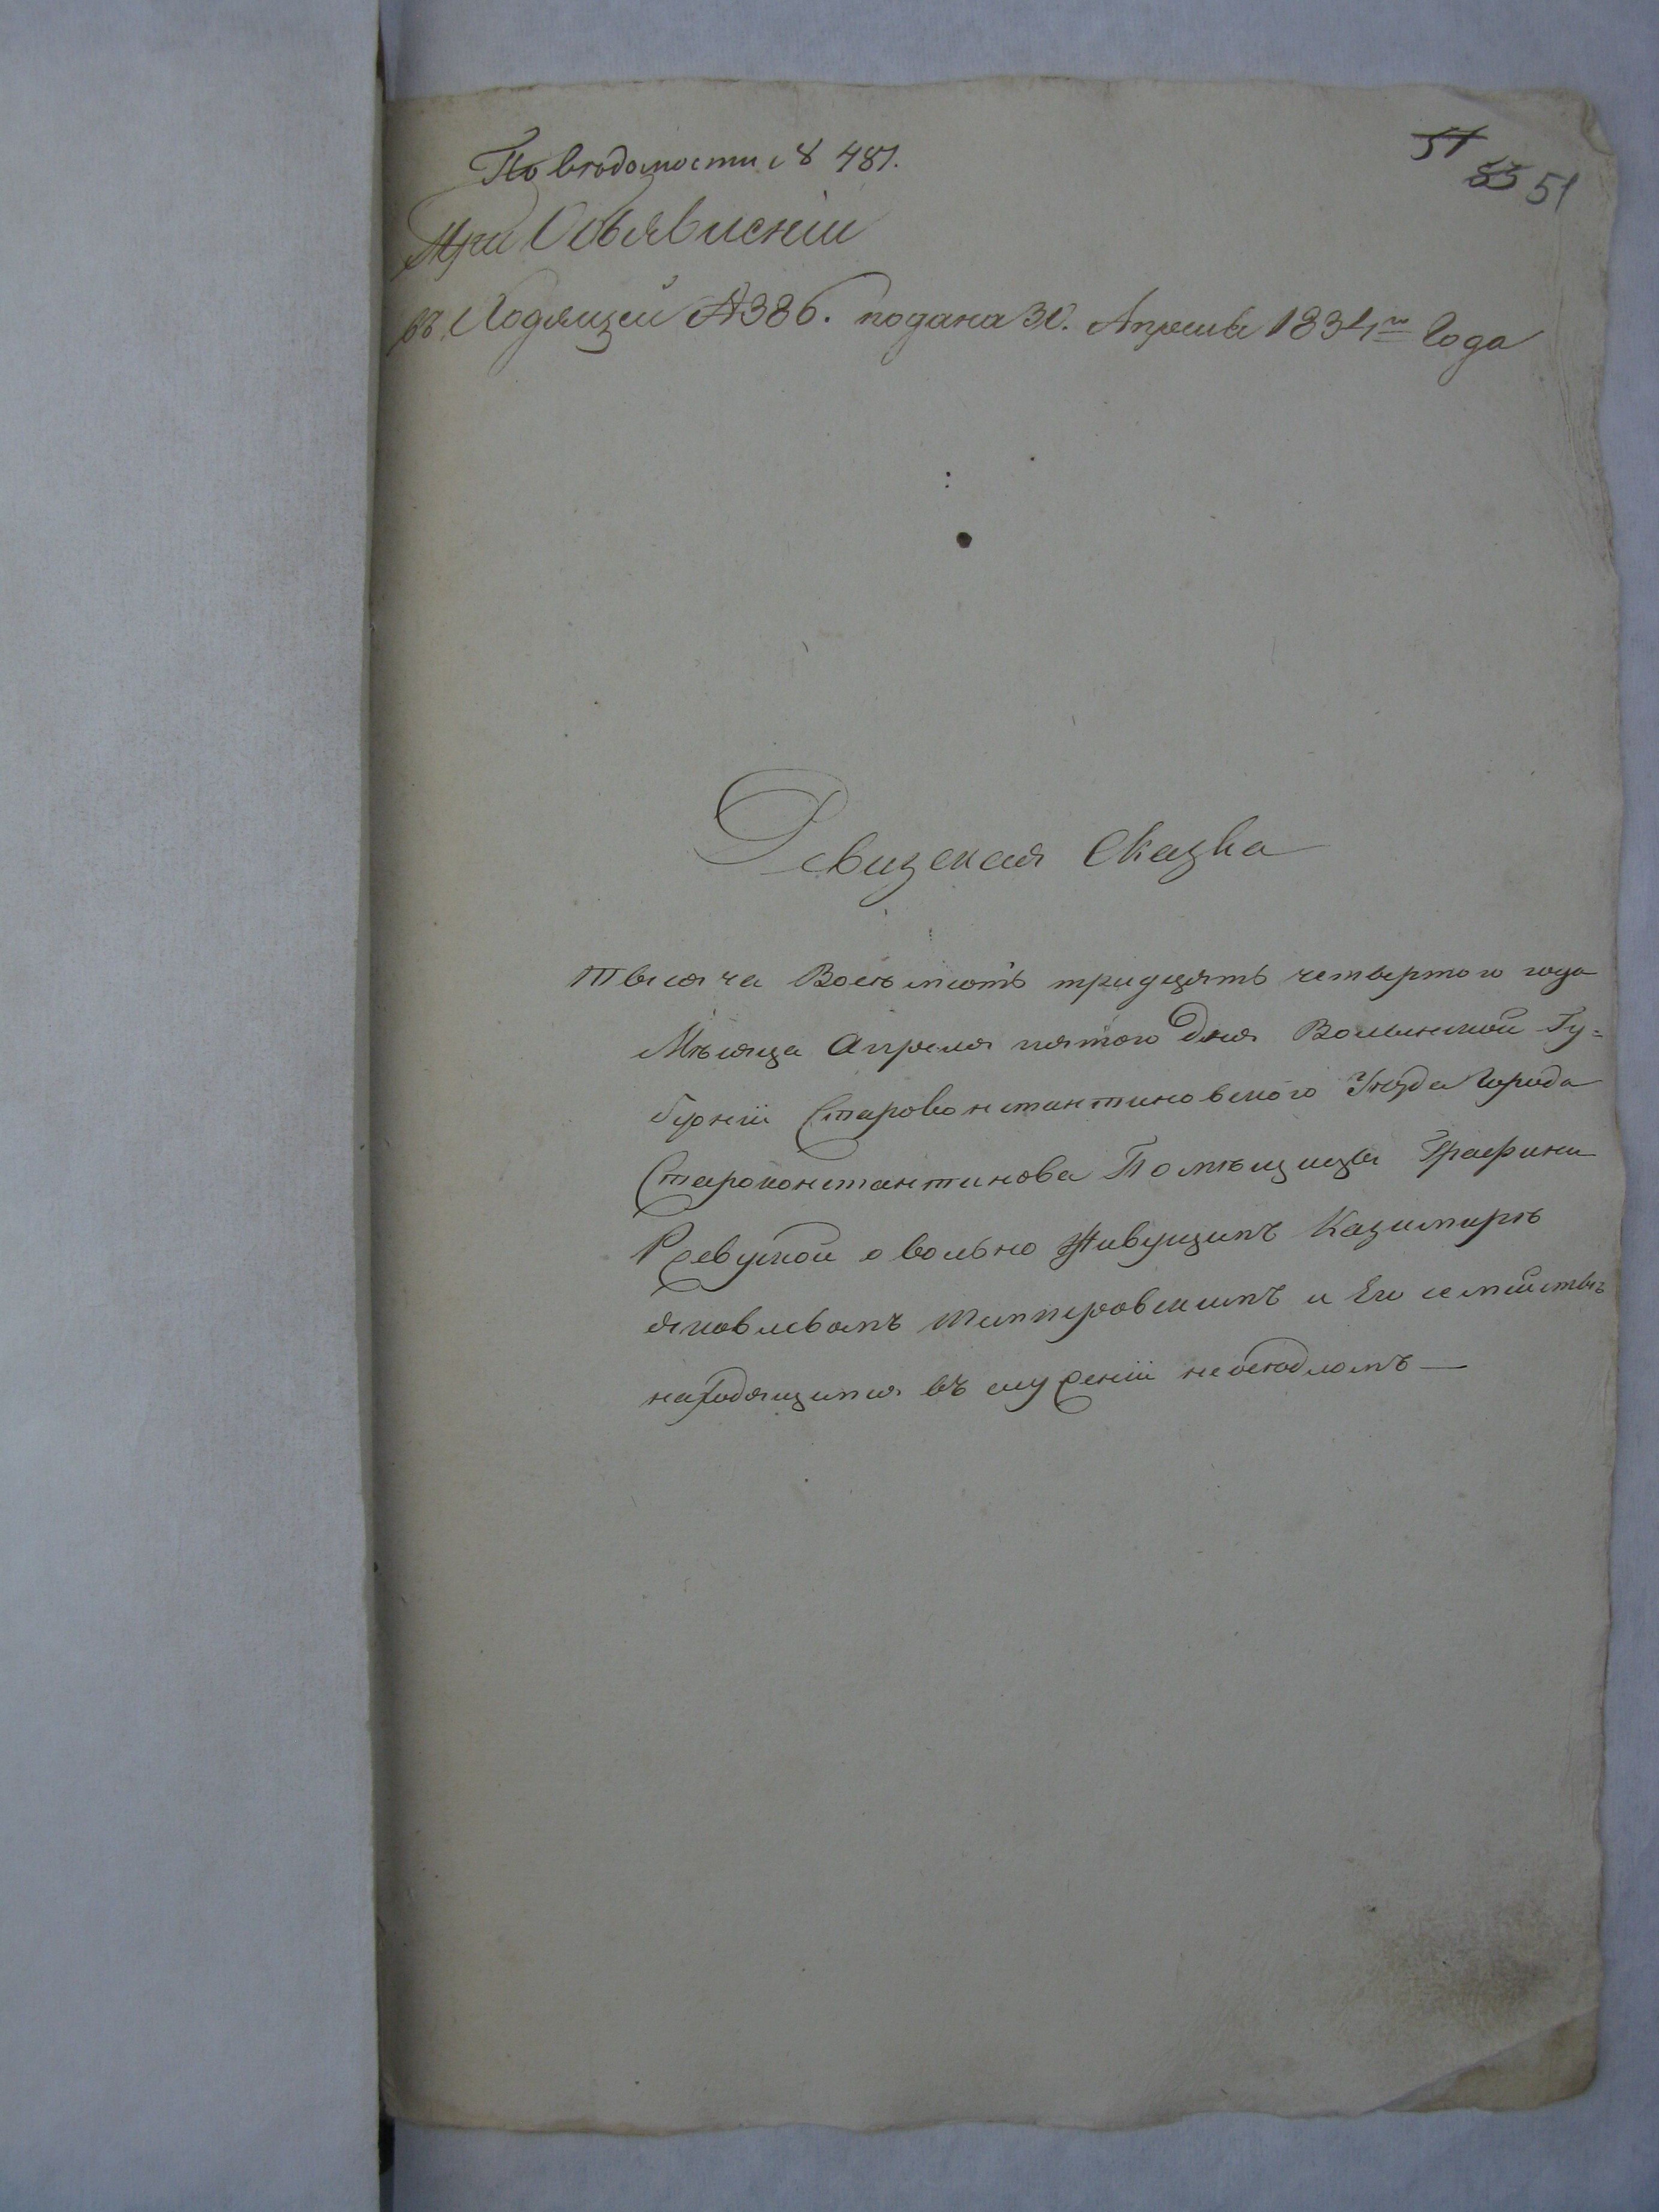 По вѣдомости № 481.
51
53 51
При Объявленіи
въ Ходящей № 386. подана 30. Апреля 1834го Года
Ревизская Сказка
Тысяча Восемьсотъ тридцять четвертого года
Мѣсяца Апреля пятого Дня Волынской Гу=
берніи Староконстантиновского Уѣзда Города
Староконстантинова Помѣщицы Графини
Ржевуской о вольно живущимъ Казимирѣ
Яковлевомъ и Его семействѣ
находящимся въ служеніи